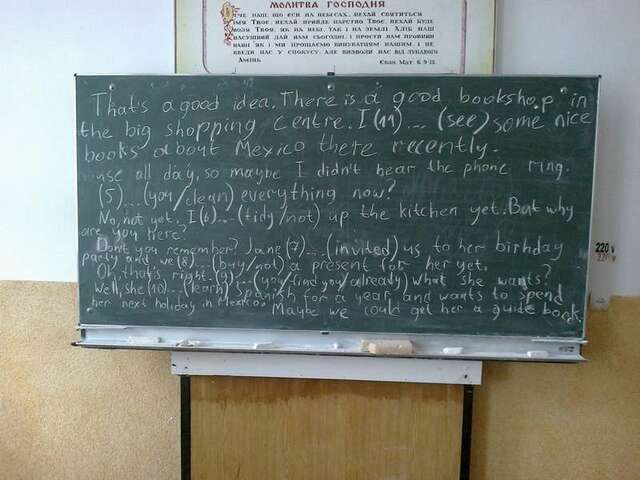 МОЛИТВА ГОСПОДНЯ
ЧЕ НАШ, ЩО ЄСИ НА НЕБЕСАХ, НЕХАЙ СВЯТИТЬСЯ
ІМЯ ТВОЄ, НЕХАЙ ПРИЙДЕ ЦАРСТВО ТВОЄ, НЕХАЙ БУДЕ
ВОЛЯ ТВОЯ, ЯК НА НЕБІ, ТАК І НА ЗЕМЛІ. ХЛІБ НАШ
НАСУЩНИЙ ДАЙ НАМ СЬОГОДНІ, І ПРОСТИ НАМ ПРОВИНИ
НАШІ ЯК І МИ ПРОЩАЄМО ВИНУВАТЦЯМ НАШИМ, І НЕ
ВВЕДИ НАС У СПОКУСУ, АЛЕ ВИЗВОЛИ НАС ВІД ЛУКАВОГО
АМІНЬ. ЄВАН. МАТ. 6. 9-13.
That's a good idea. There is a good bookshop in
the big shopping centre. I (11)... (see) some nice
books about Mexico there recently.
use all day, so maybe I didn't hear the phone ring.
(5)... (you/clean) everything now?
No, not yet. I (6)... (tidy/not) up the kitchen yet. But why
are you here?
Don't you remember? Jane (7)... (invited) us to her birhday
party and we (8)... (buy/not) a present for her yet.
Oh, that's right. (9)... (you/find you/already) what she wants?
Well, she (10)... (learn) Spanish for a year and wants to spend
her next holiday in Mexico. Maybe we could get her a guide book.
220 v
220 v